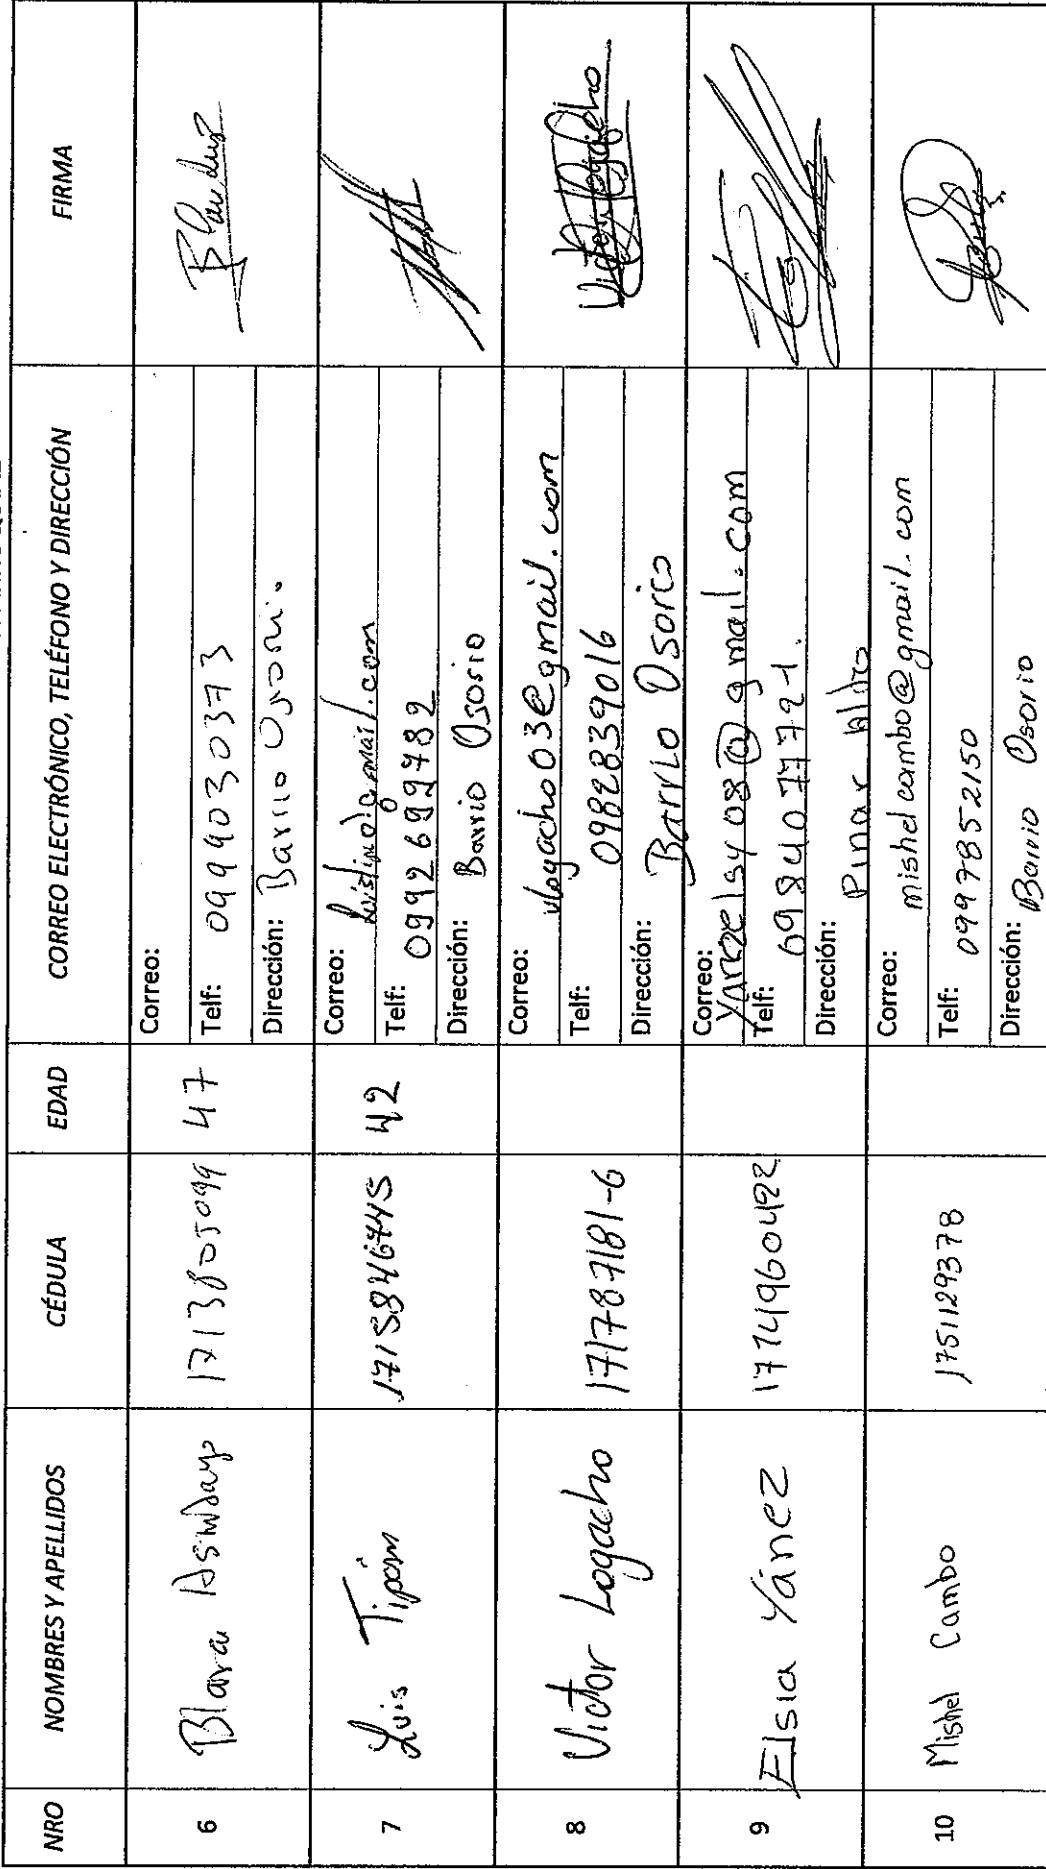 NRO NOMBRES Y APELLIDOS CÉDULA EDAD CORREO ELECTRÓNICO, TELÉFONO Y DIRECCIÓN FIRMA
6 1713805099 47
Correo:
Telf: 0999030373
Dirección: Barrio Osorio
7 Luis Tipán 1715846745 42
Correo:
Telf: 0992699782
Dirección: Barrio Osorio
8 Victor Logacho 171787181-6
Correo: vlogacho03@gmail.com
Telf: 0982839016
Dirección: Barrio Osorio
9 Elsia Yánez 1714960422
Correo: Yanezelsy08@gmail.com
Telf: 0984077721.
Dirección: Pinar Alto
10 Mishel Cambo 1751129378
Correo: mishelcambo@gmail.com
Telf: 0997852150
Dirección: Barrio Osorio